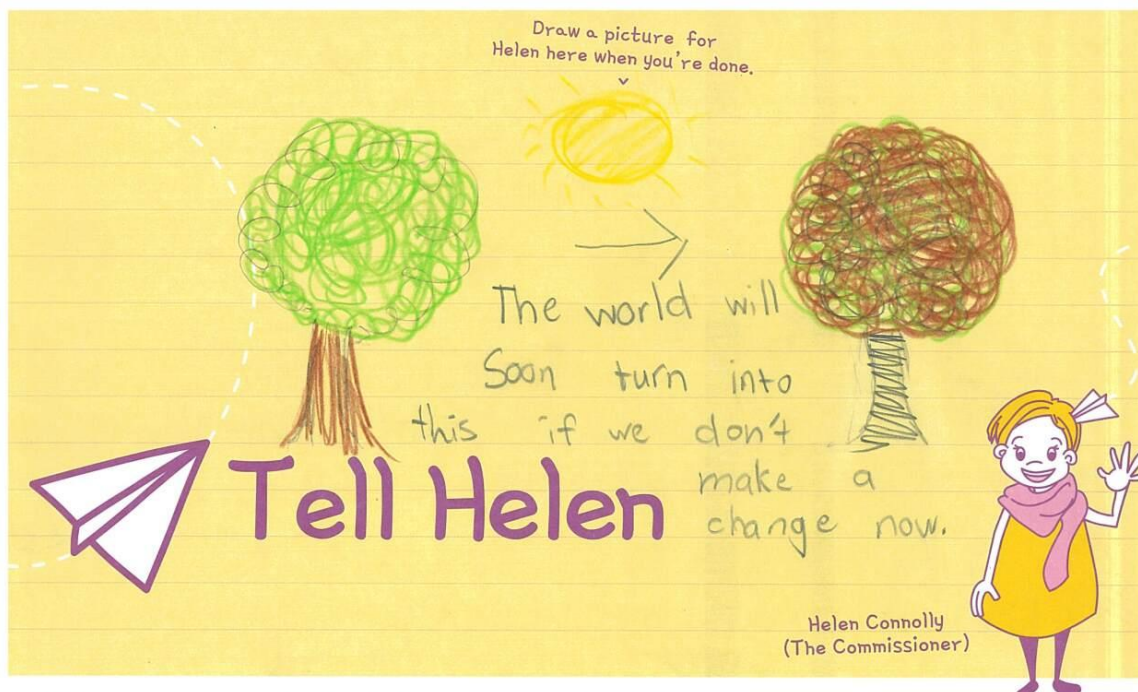 Draw a picture for
Helen here when you're done.
The world will
Soon turn into
this if we don't
make a
change now.
Tell Helen
Helen Connolly
(The Commissioner)